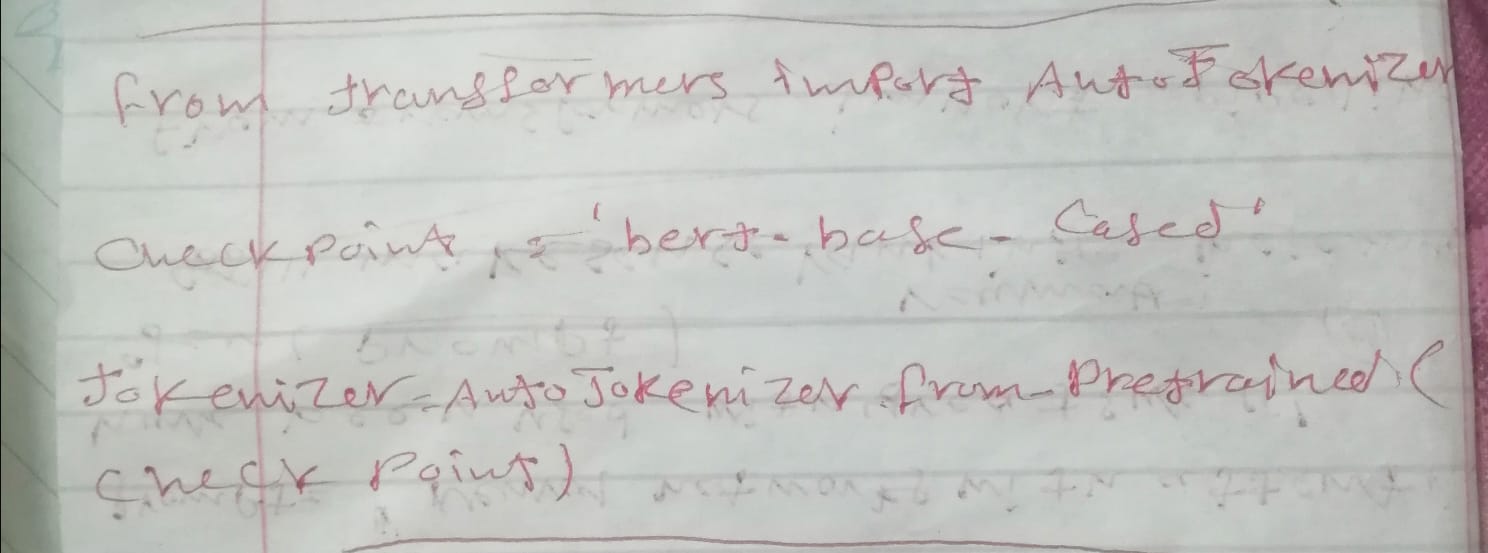 from transformers import AutoTokenizer
checkpoint = 'bert-base-cased'
tokenizer = AutoTokenizer.from_pretrained(
checkpoint)